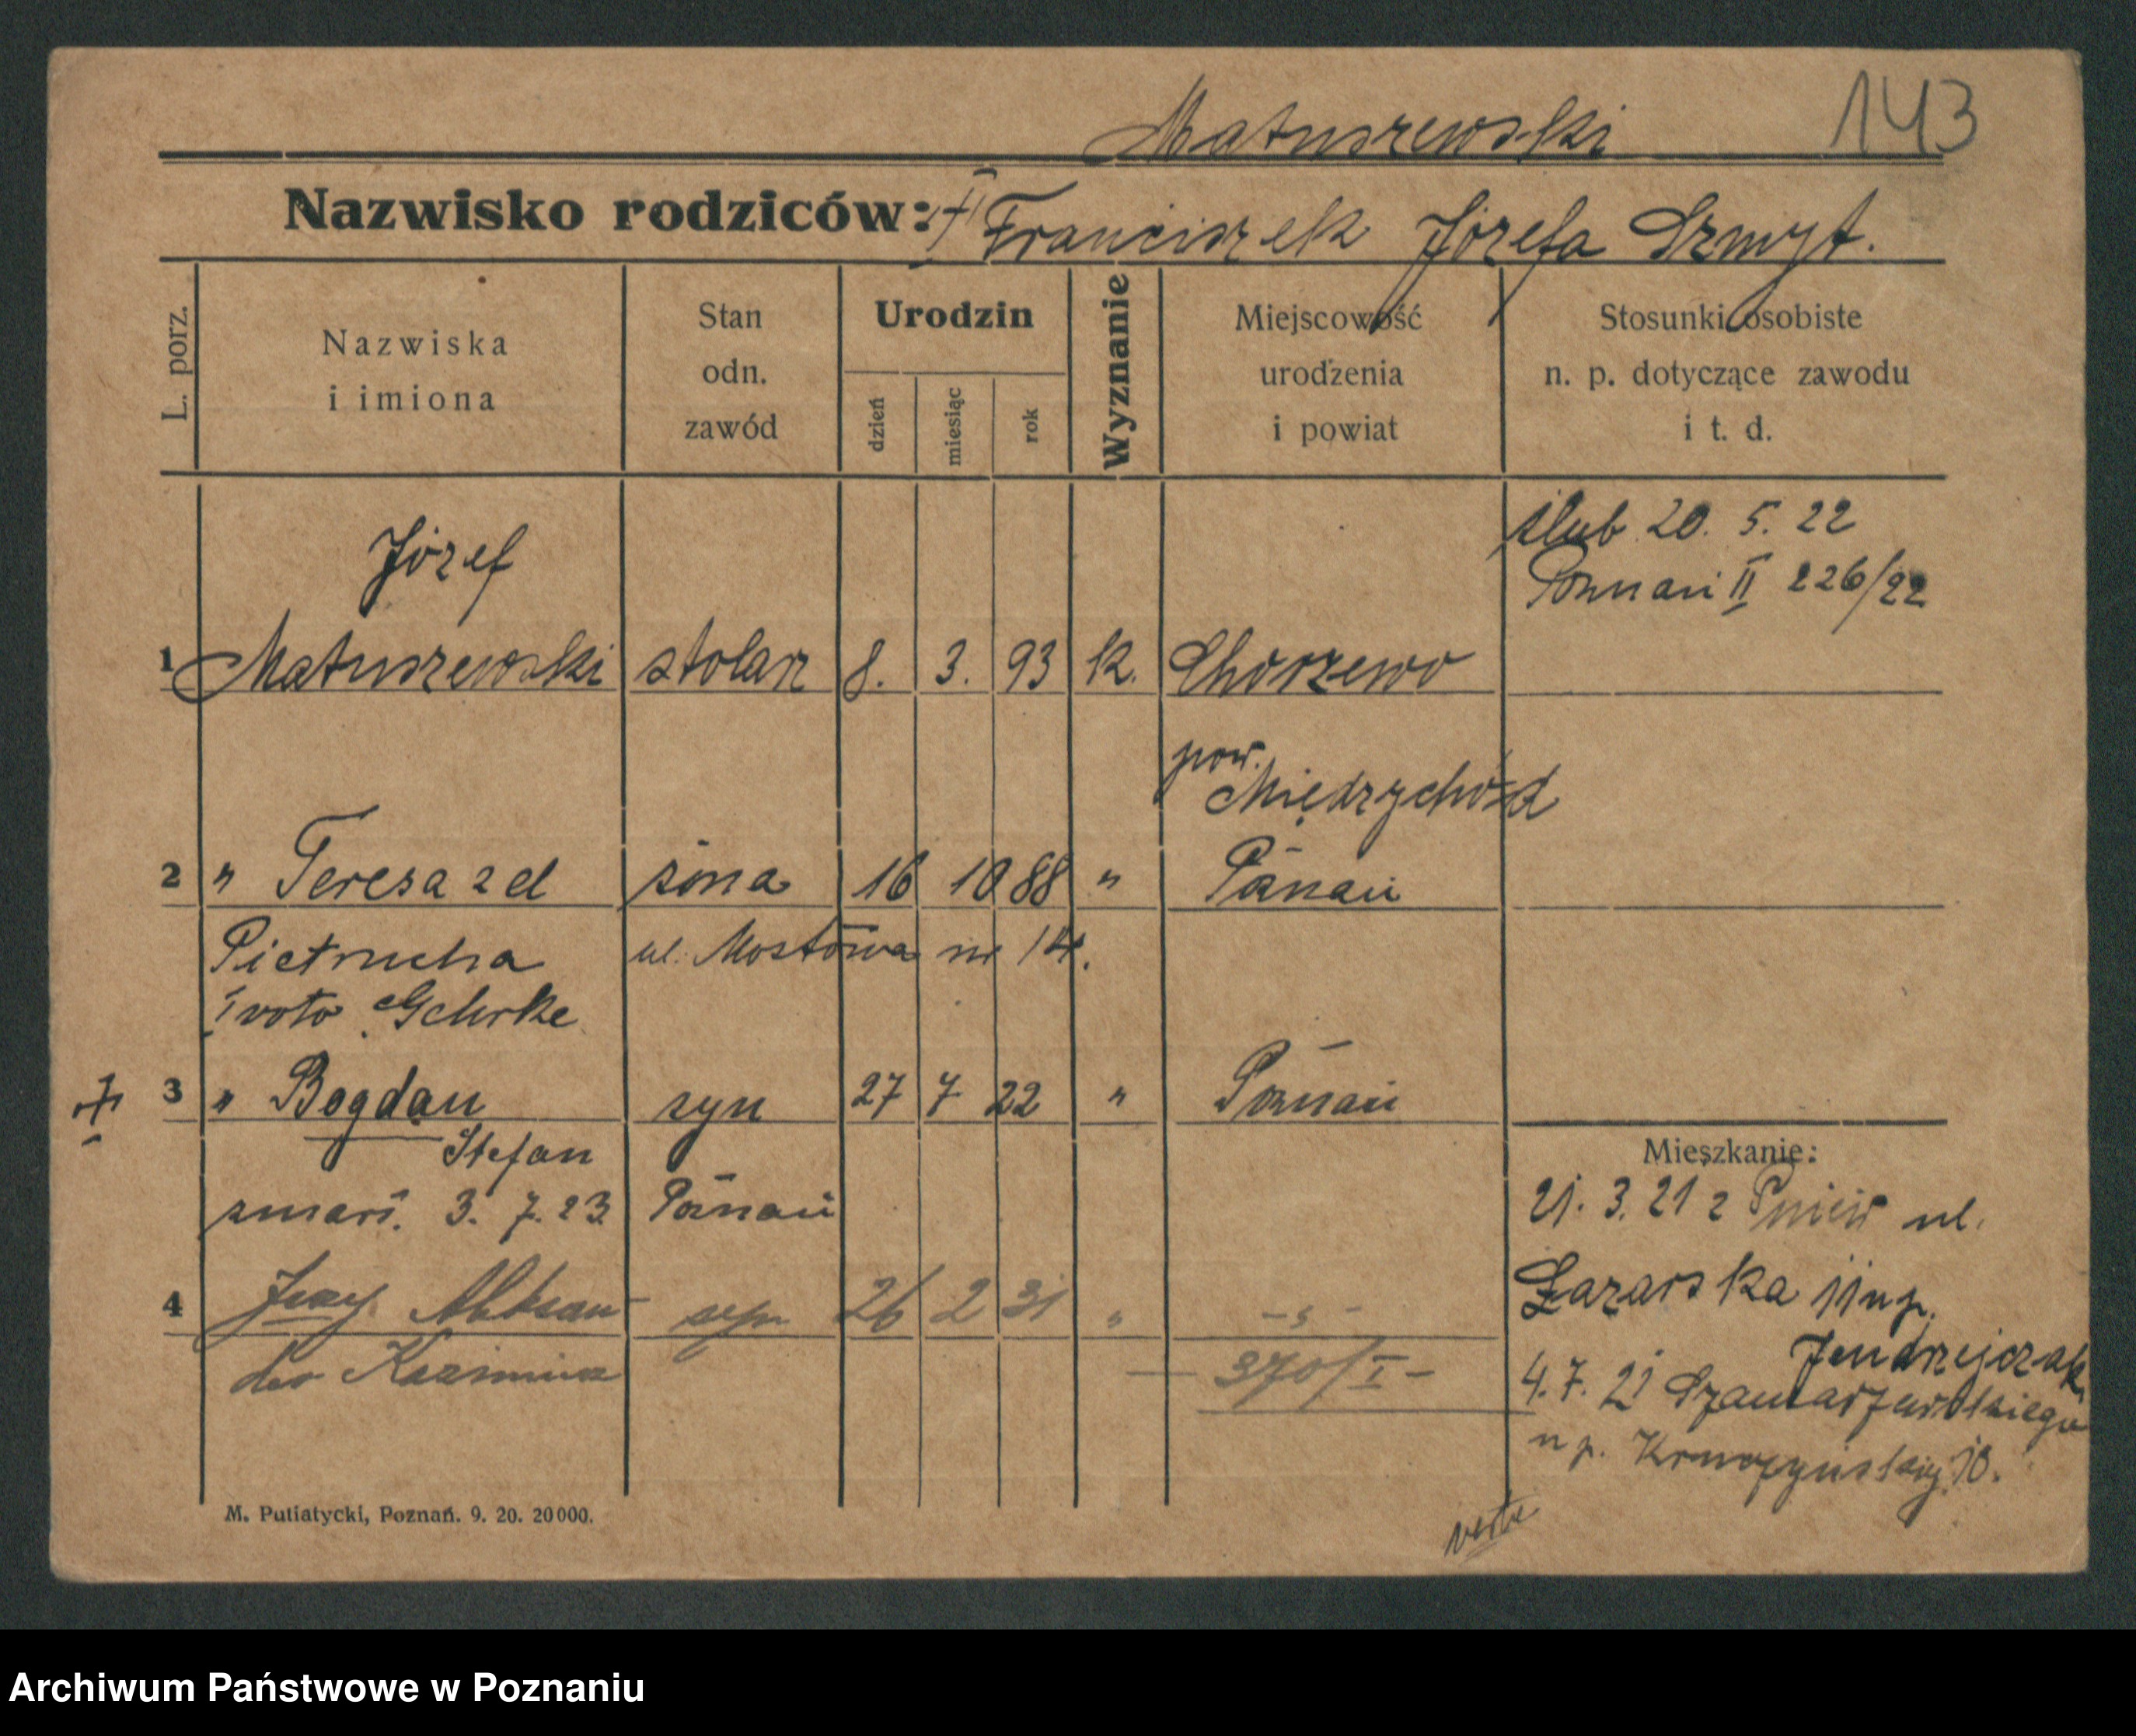 Matuszewski 143
Nazwisko rodziców: Franciszek Józefa Szmyt.
L. porz.
Nazwiska
i imiona
Stan
odn.
zawód
Urodzin
dzień
miesiąc
rok
Wyznanie
Miejscowość
urodzenia
i powiat
Stosunki osobiste
n. p. dotyczące zawodu
i t. d.
ślub 20. 5. 22
Poznań II 226/22
Józef
1 Matuszewski stolarz 8. 3. 93 k. Chorzewo
pow.
Międzychód
2 " Teresa z d żona 16 10 88 " Poznań
Pietrucha ul. Mostowa nr 14.
I voto Gehrke
3 " Bogdan syn 27 7 22 " Poznań
Stefan
zmarł. 3. 7. 23 Poznań
4 Jerzy Aleksan- syn 26 2 31 " - " -
der Kazimierz 370/I -
Mieszkanie:
21. 3. 21 z Pniew ul.
Łazarska 11 n p.
Jendrzejczak
4. 7. 21 Szamarzewskiego
n p. 10.
verte
M. Putiatycki, Poznań. 9. 20. 20000.
Archiwum Państwowe w Poznaniu